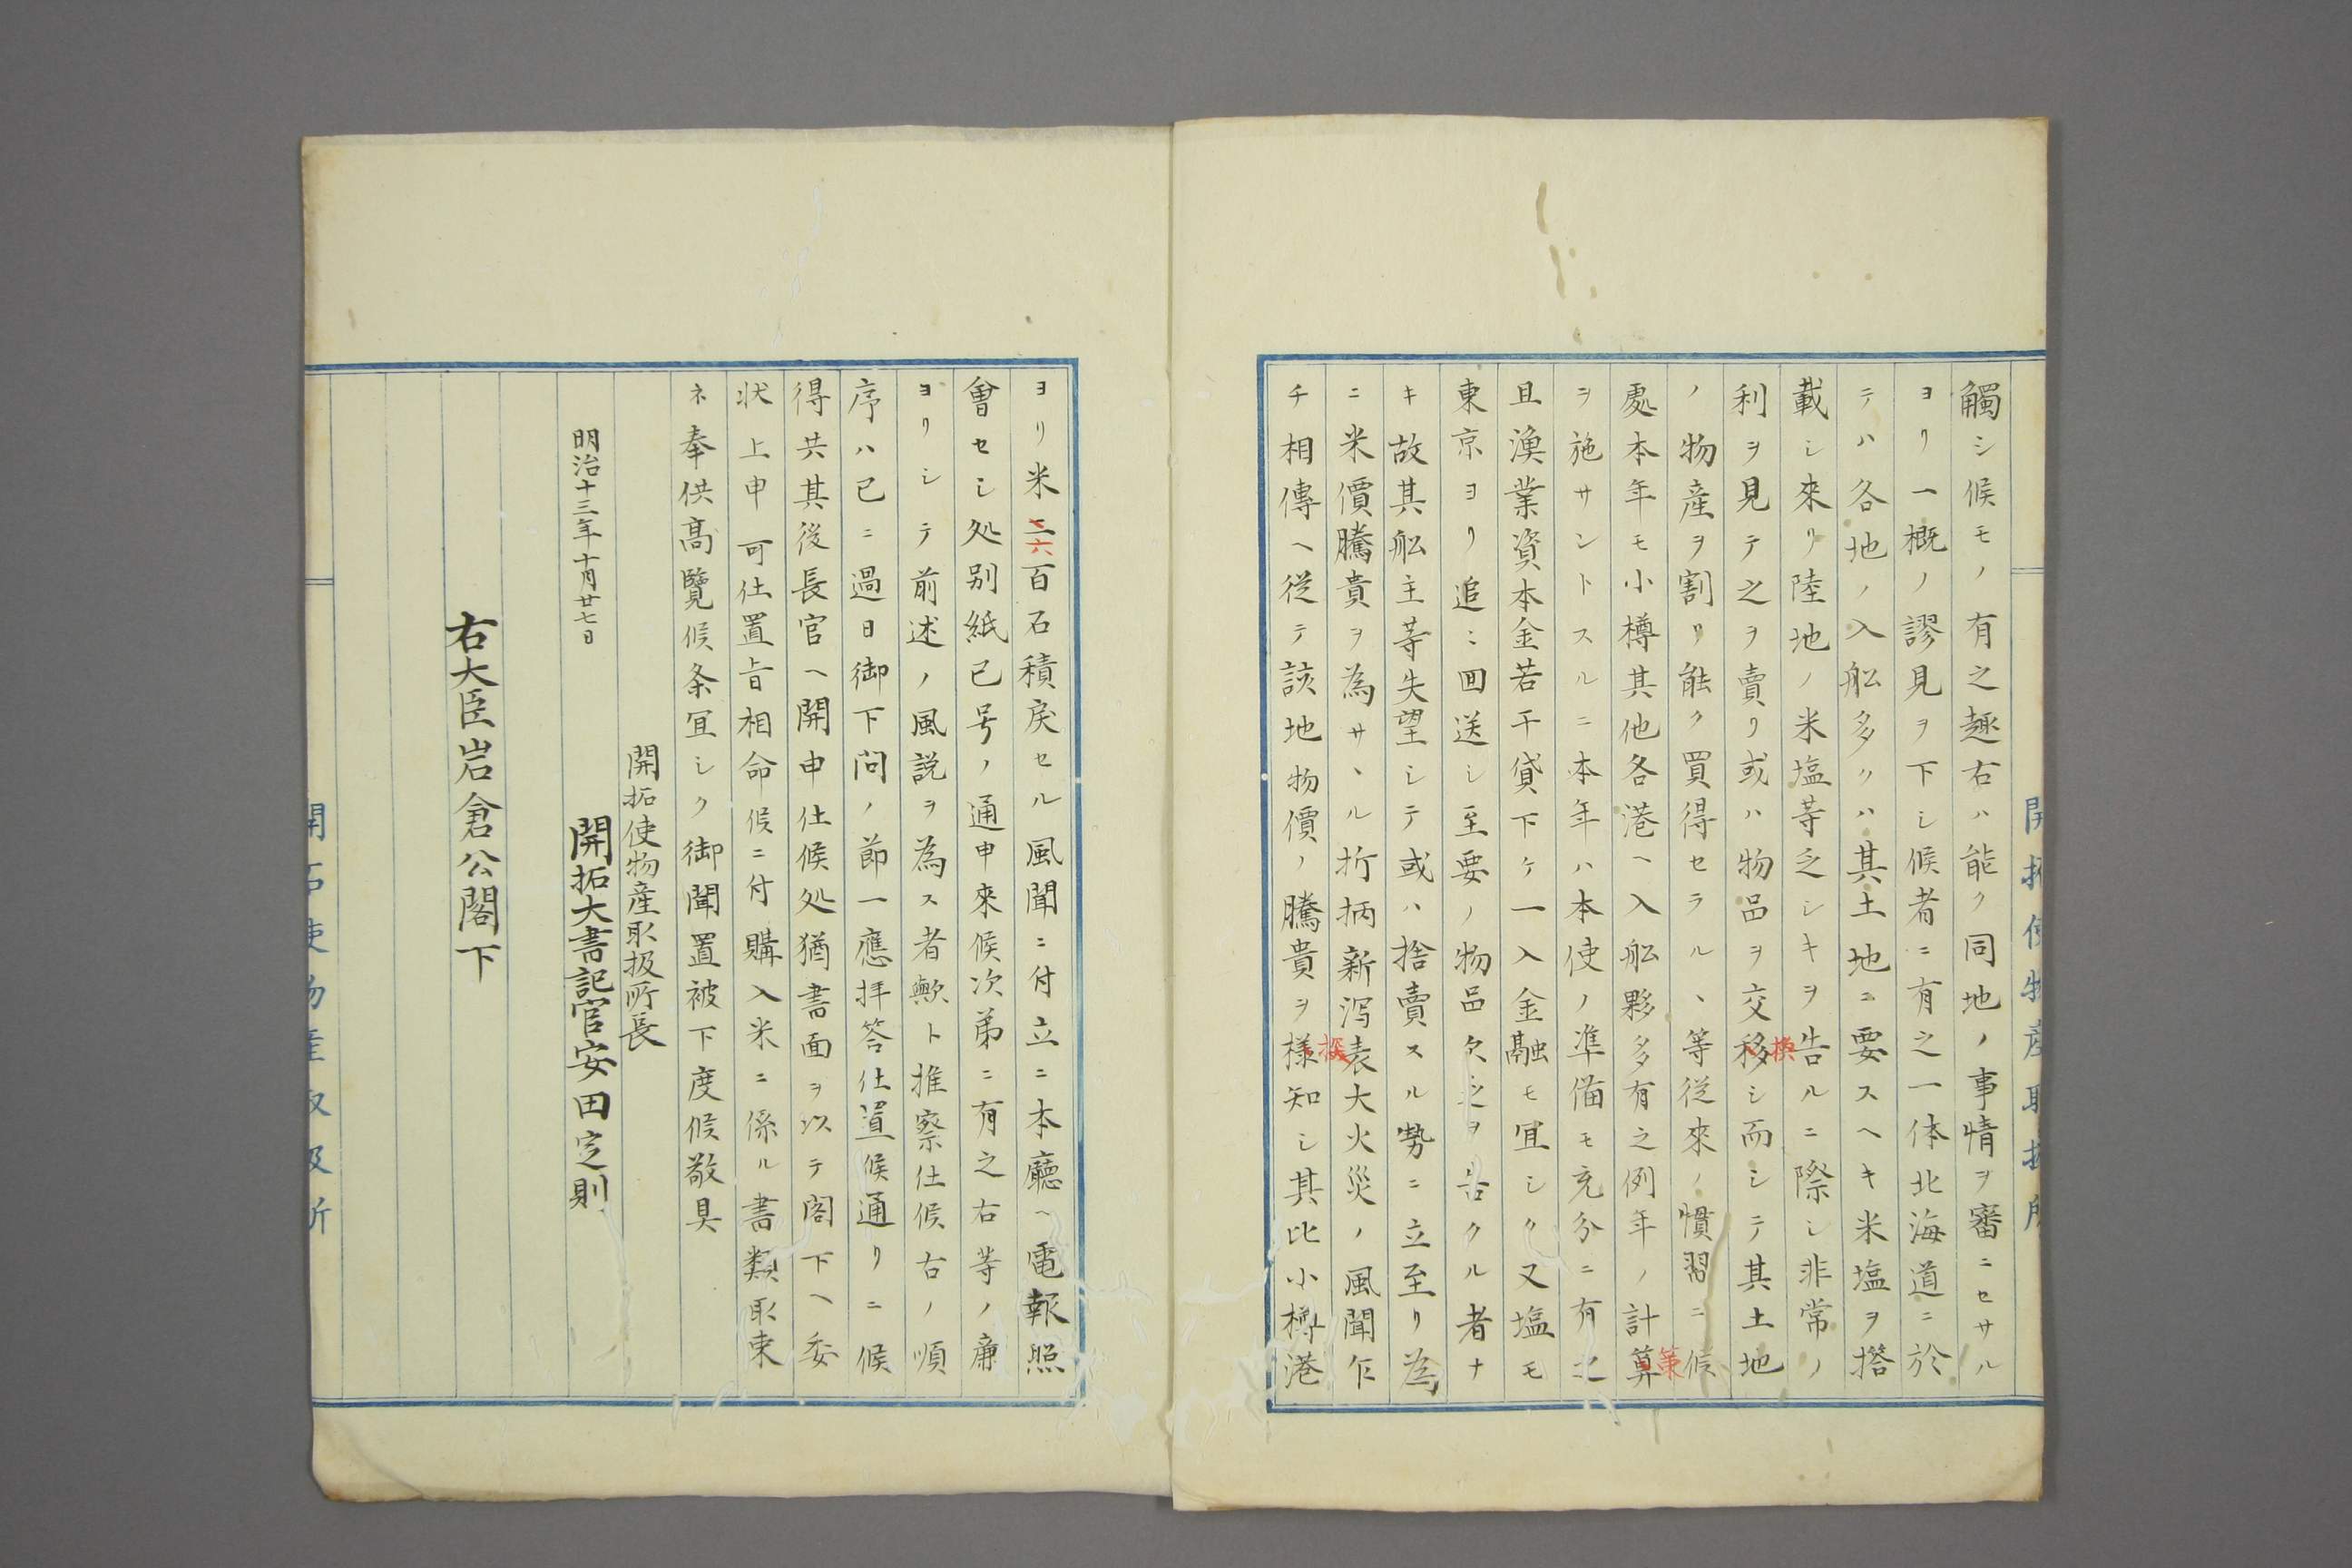 開拓使物産取扱所
觸シ候モノ有之趣右ハ能ク同地ノ事情ヲ審ニセサル
ヨリ一概ノ謬見ヲ下シ候者ニ有之一体北海道ニ於
テハ各地ノ入舩多クハ其土地ニ要スヘキ米塩ヲ搭
載シ來リ陸地ノ米塩等乏シキヲ告ルニ際シ非常ノ
利ヲ見テ之ヲ賣リ或ハ物品ヲ交移換シ而シテ其土地
ノ物産ヲ割リ能ク買得セラル、等従來ノ慣習ニ候
處本年モ小樽其他各港ヘ入舩夥多有之例年ノ計算策
ヲ施サントスルニ本年ハ本使ノ準備モ充分ニ有之
且漁業資本金若干貸下ケ一入金融モ宜シク又塩モ
東京ヨリ追ニ回送シ至要ノ物品欠乏ヲ告クル者ナ
キ故其舩主等失望シテ或ハ捨賣スル勢ニ立至リ為
ニ米價騰貴ヲ為サヽル折柄新泻表大火災ノ風聞乍
チ相傳ヘ従テ該地物價ノ騰貴ヲ様探知シ其比小樽港
ヨリ米二六百石積戻セル風聞ニ付立ニ本廳ヘ電報照
會セシ処別紙已号ノ通申來候次第ニ有之右等ノ廉
ヨリシテ前述ノ風説ヲ為ス者歟ト推察仕候右ノ順
序ハ已ニ過日御下問ノ節一應拝答仕置候通リニ候
得共其後長官ヘ開申仕候処猶書面ヲ以テ閣下ヘ委
状上申可仕置旨相命候ニ付購入米ニ係ル書類取束
ネ奉供高覽候条宜シク御聞置被下度候敬具
開拓使物産取扱所長
明治十三年十月廿七日　開拓大書記官安田定則
右大臣岩倉公閣下
開拓使物産取扱所